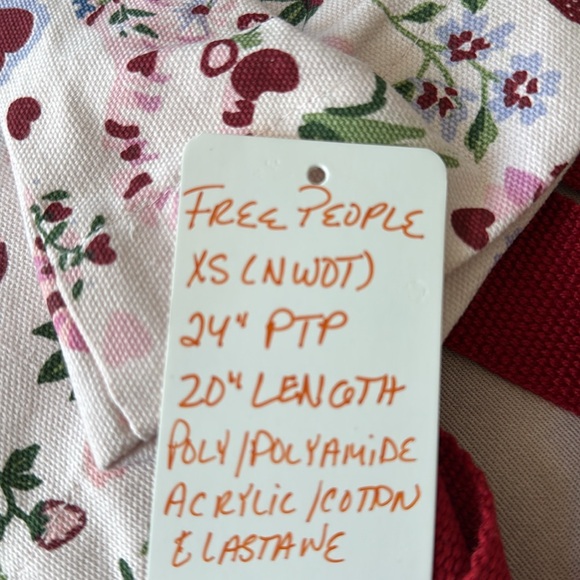 FREE PEOPLE
XS (NWOT)
24" PTP
20" LENGTH
POLY/POLYAMIDE
ACRYLIC/COTTON
ELASTANE